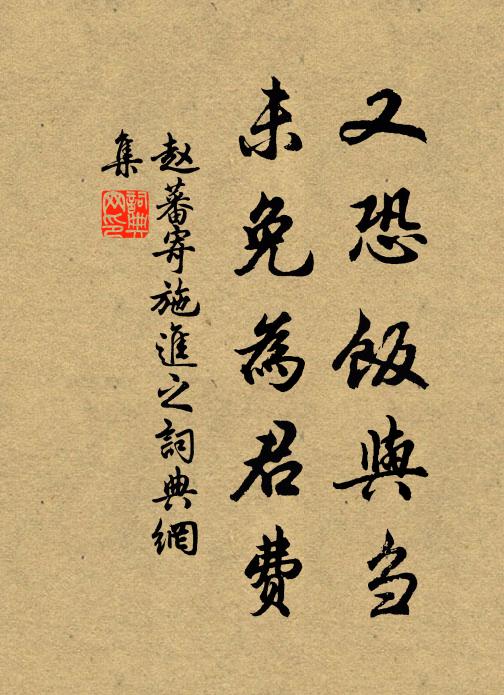 又恐飯與刍
未免為君費
赵蕃寄施進之詞典網
集
詞典
网印